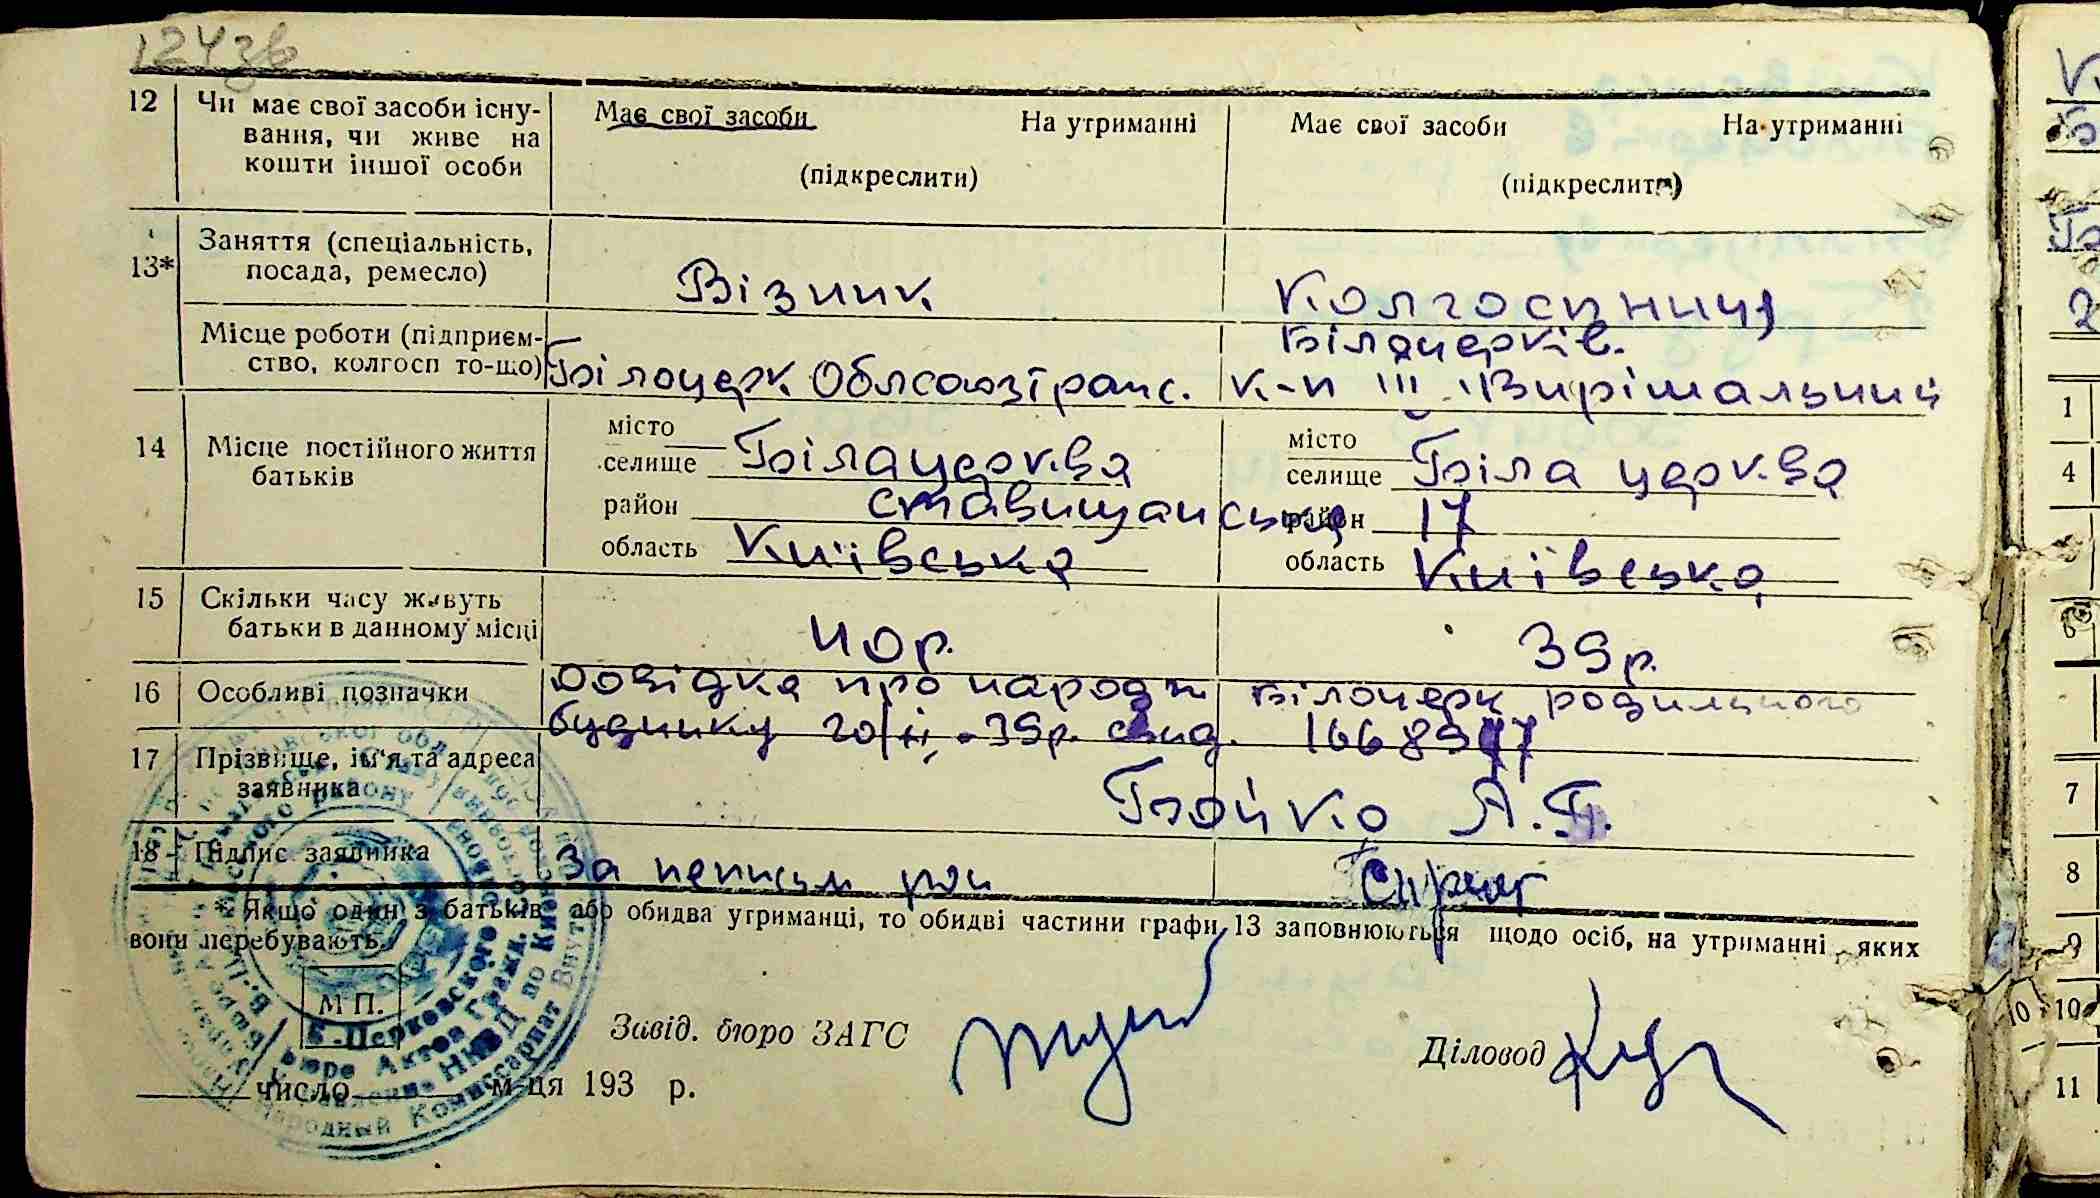 124зв
12 Чи має свої засоби існу- Має свої засоби На утриманні Має свої засоби На утриманні
вання, чи живе на
кошти іншої особи (підкреслити) (підкреслити)
13* Заняття (спеціальність,
посада, ремесло) Візник Колгоспниця
Місце роботи (підприєм- Білоцерків.
ство, колгосп то-що) Білоцерк Облсоюзтранс. к-п III Вирішальний
14 Місце постійного життя місто місто
батьків селище Білацерква селище Біла церква
район ставищанська район 17
область Київська область Київська
15 Скільки часу живуть
батьки в данному місці 40р. 39р.
16 Особливі позначки довідка про народж Білоцерк родильного
будинку 20/ -39р.
17 Прізвище, ім'я та адреса
заявника Бойко А.Б.
18 Підпис заявника За неписьм
* Якщо один з батьків або обидва утриманці, то обидві частини графи 13 заповнюються щодо осіб, на утриманні яких
вони перебувають.
М П.
Завід. бюро ЗАГС Діловод
число м-ця 193 р.
Б.-Церковского
Бюро Актов Гражд.
НКВД по Киев
Народный Комиссариат Внутр
1
4
7
8
9
10 10
11